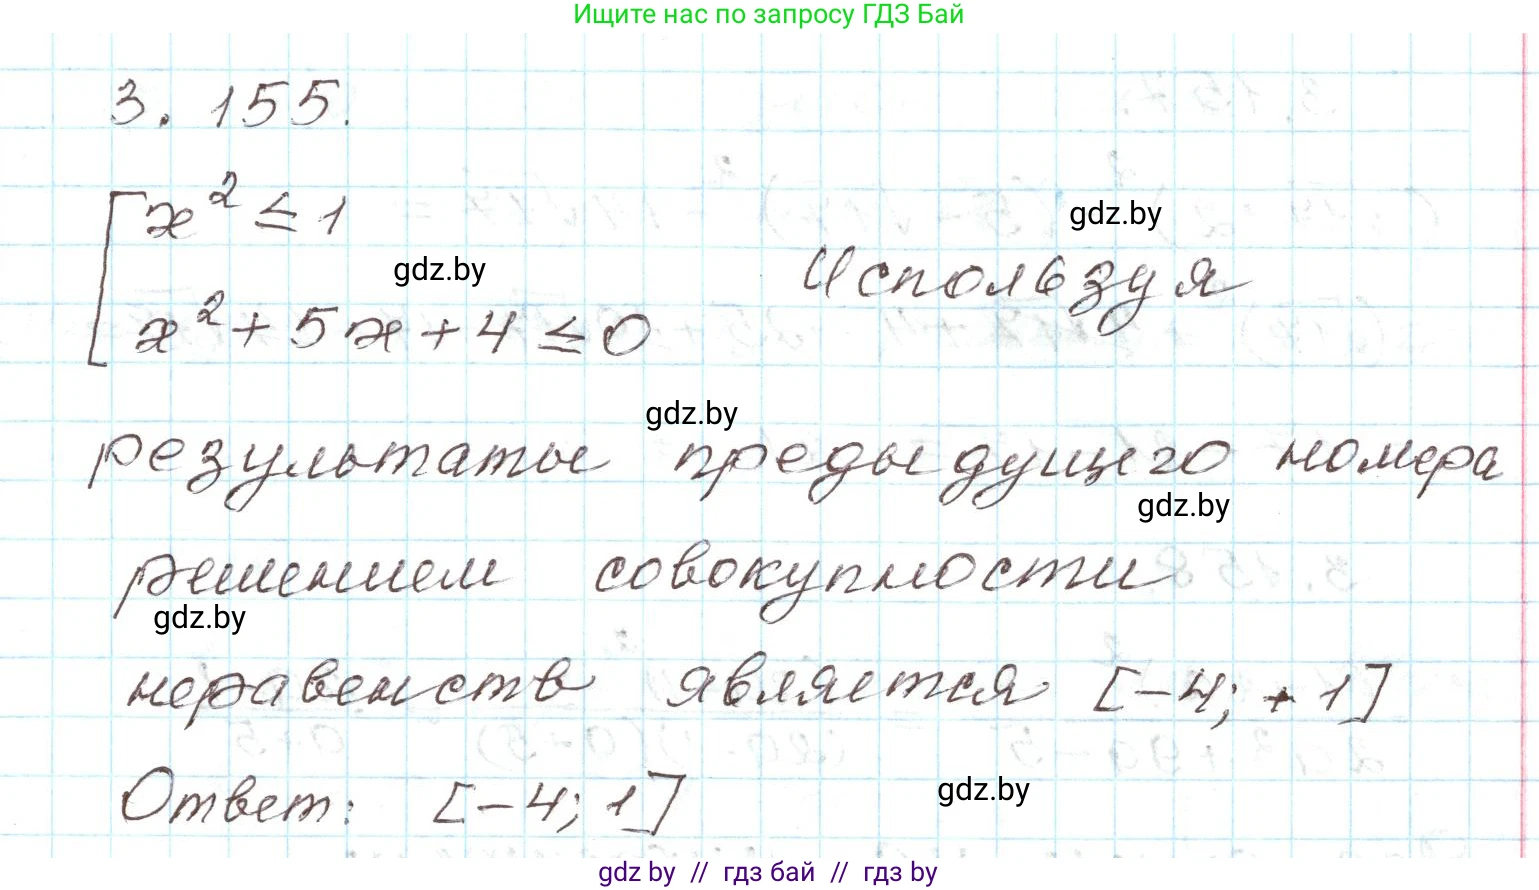 Ищите нас по запросу ГДЗ Бай
3. 155.
x² ≤ 1
gdz.by
gdz.by
x² + 5x + 4 ≤ 0
Используя
gdz.by
результаты предыдущего номера
gdz.by
решением совокупности
gdz.by
неравенств является [-4; +1]
Ответ: [-4; 1]
gdz.by
gdz by // гдз бай // гдз by